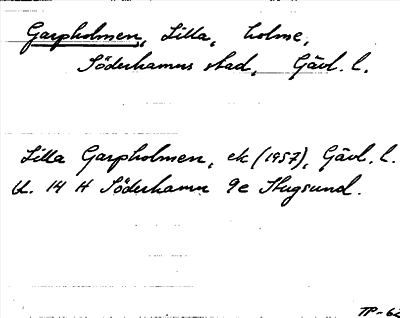 Garpholmen, Lilla, holme,
Söderhamns stad, Gävl. l.
Lilla Garpholmen, ek (1957), Gävl. l.
bl. 14 H Söderhamn 9e Stugsund.
TP-62